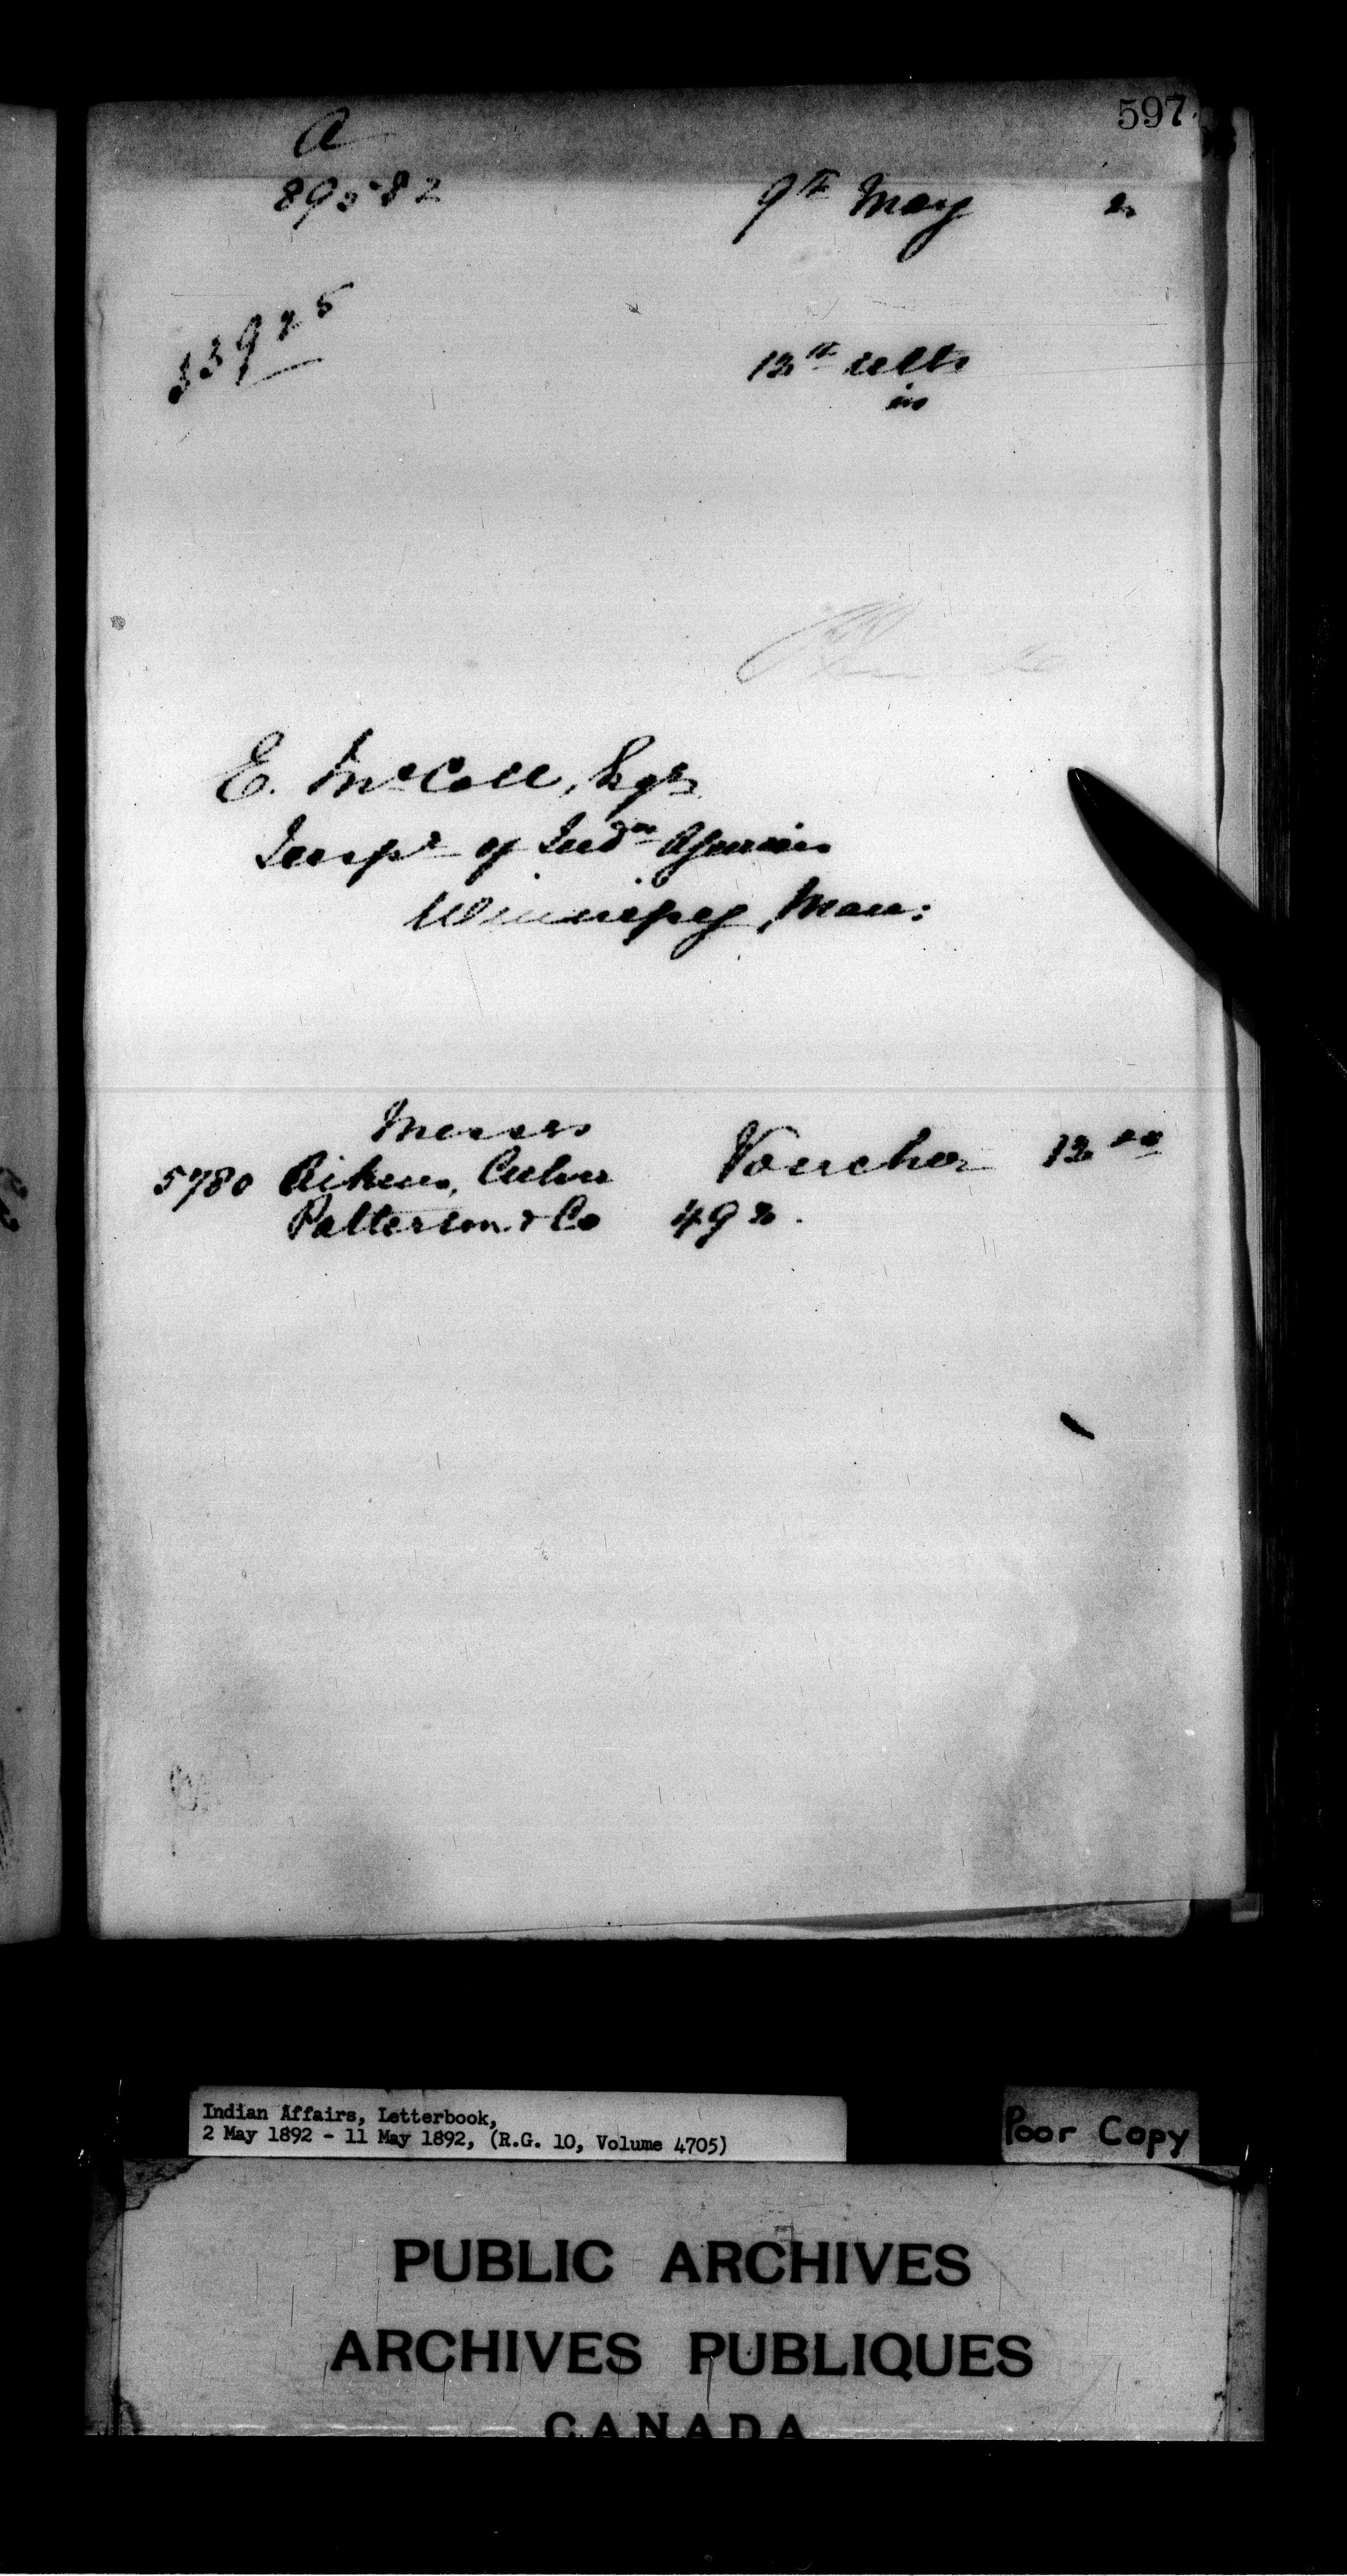 597
A
89582
9th May 2
33925
12th ulto
in
E. McColl, Esqr
Inspr of Indn Agencies
Winnipeg, Man:
Messrs
5780 Aikens, Culver Voucher 12 00
Patterson & Co 492.
Indian Affairs, Letterbook,
2 May 1892 - 11 May 1892, (R.G. 10, Volume 4705)
Poor Copy
PUBLIC ARCHIVES
ARCHIVES PUBLIQUES
CANADA